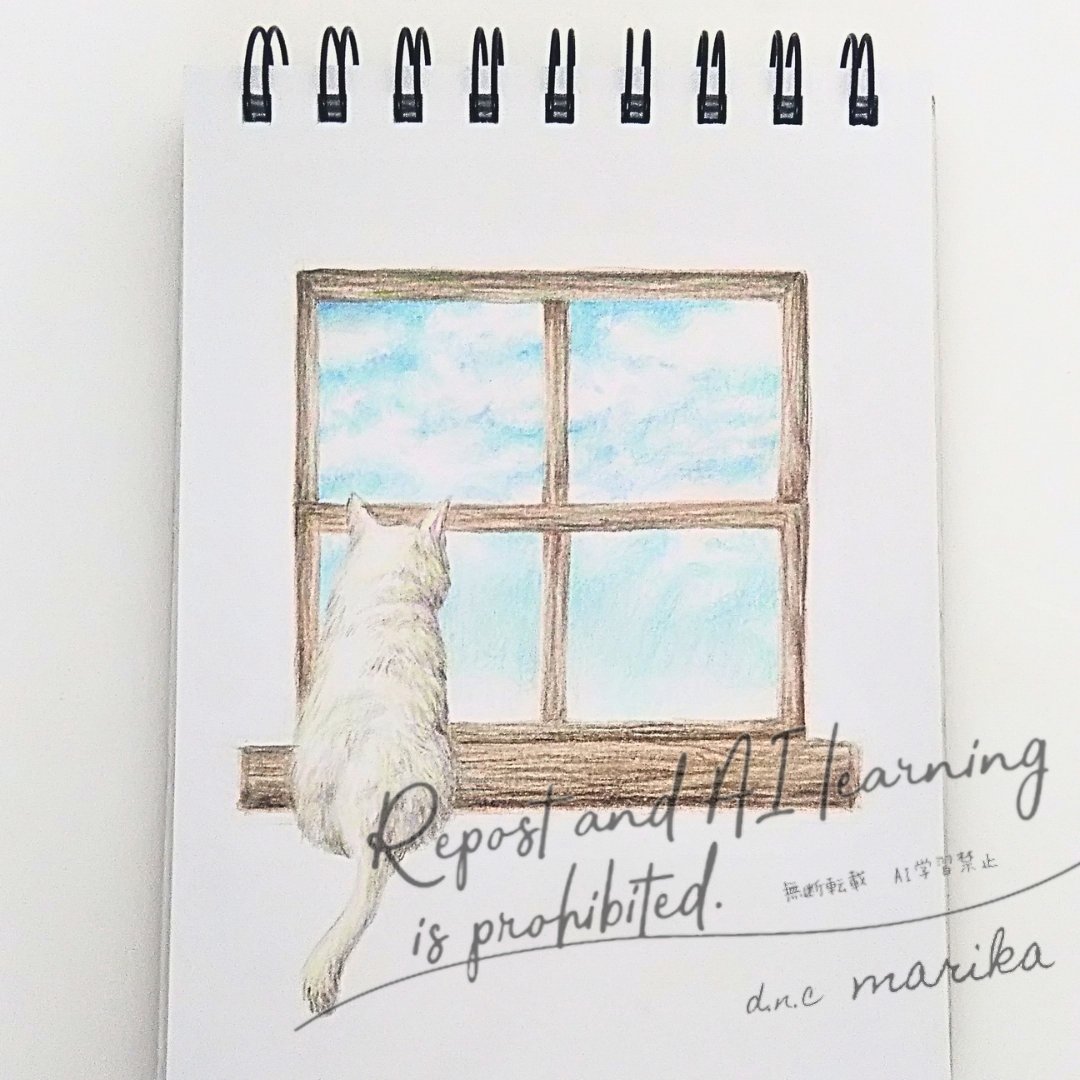 Repost and AI learning
is prohibited.
無断転載 AI学習禁止
d.n.c marika